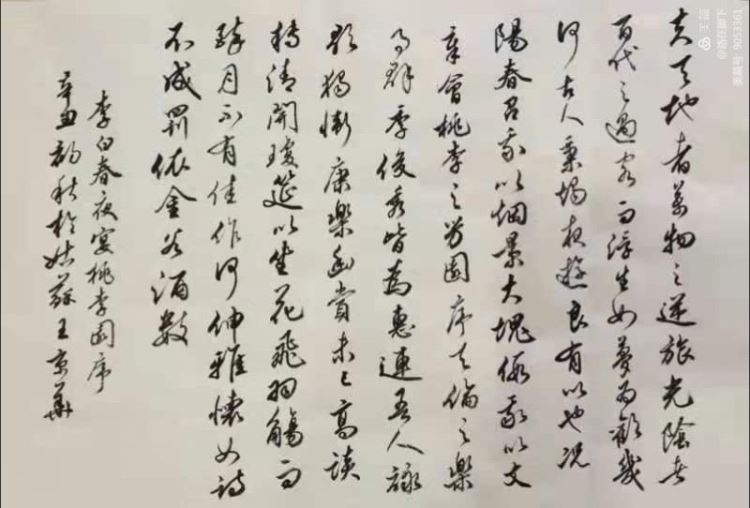 夫天地者萬物之逆旅光陰者
百代之過客而浮生如夢為歡幾
何古人秉燭夜遊良有以也況
陽春召我以烟景大塊假我以文
章會桃李之芳園序天倫之樂
事群季俊秀皆為惠連吾人詠
歌獨慚康樂幽賞未已高談
轉清開瓊筵以坐花飛羽觴而
醉月不有佳作何伸雅懷如詩
不成罰依金谷酒數
李白春夜宴桃李園序
辛丑秋於姑蘇王京華
美篇
美篇号 9053361